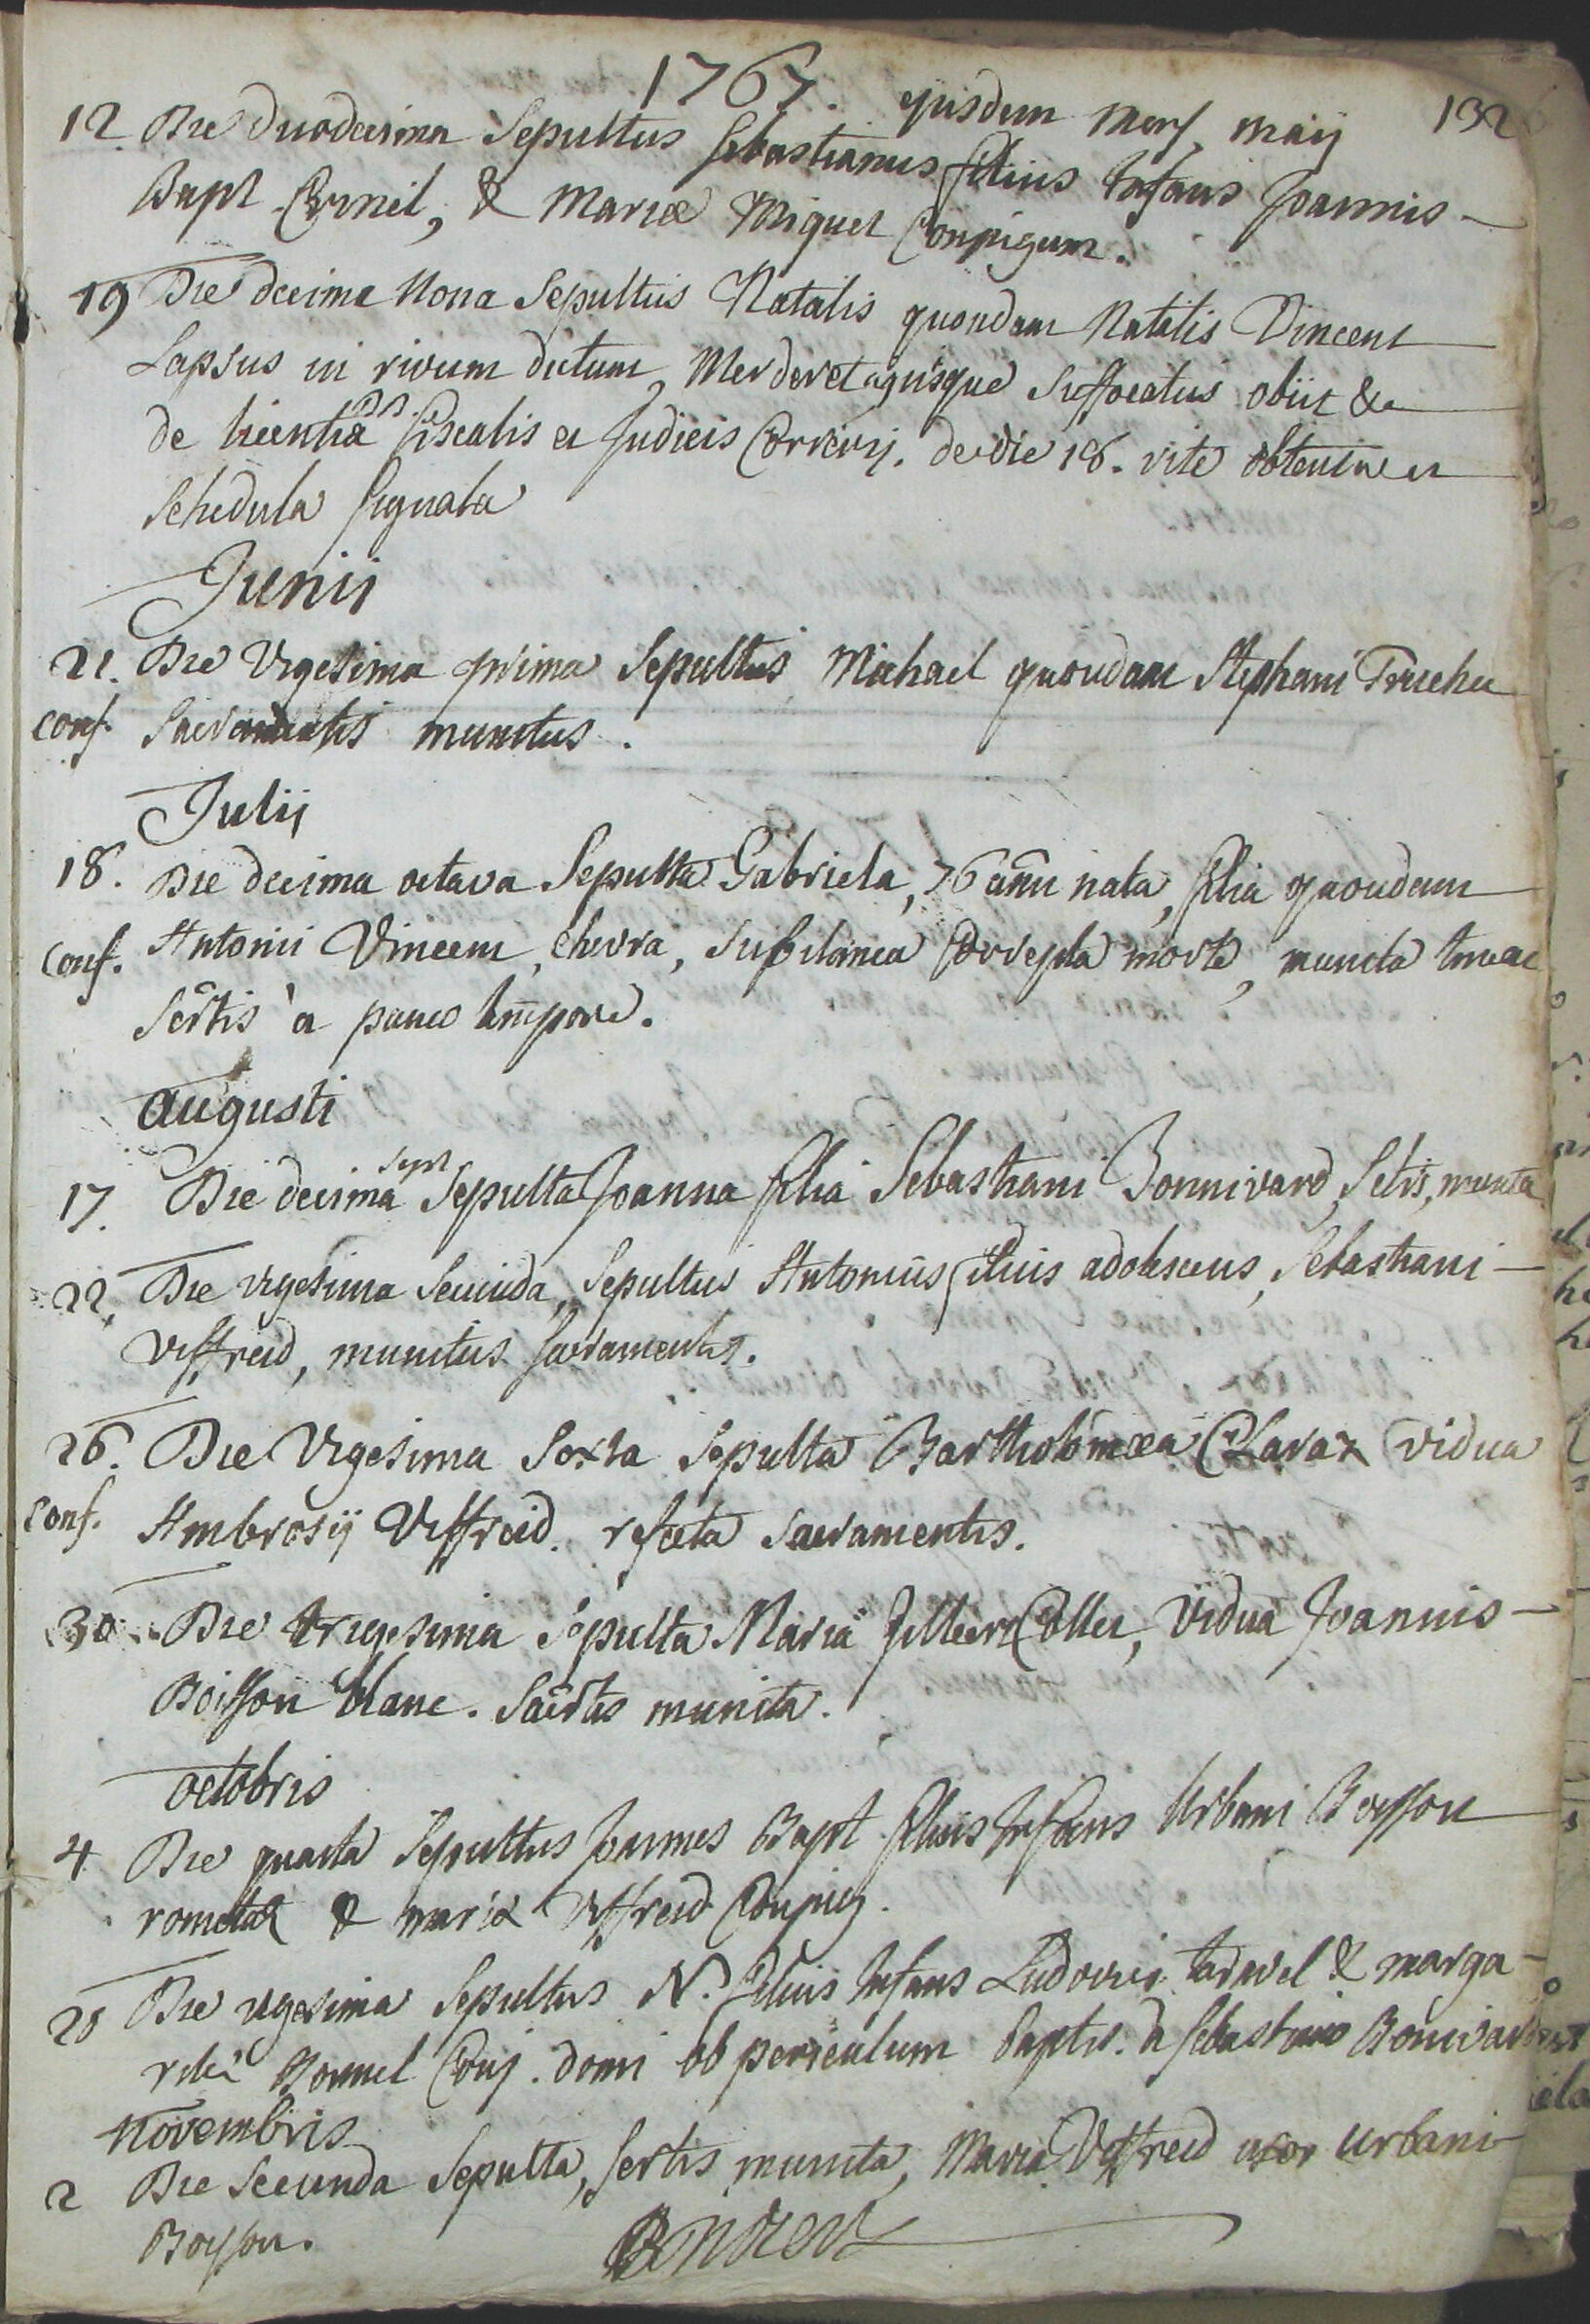 1767. ejusdem Mens. Maij 132
12. Die duodecima Sepultus Sebastianus filius infans Joannis
Bapt Cornil, & Mariæ Miquet Conjugum.
19 Die decima nona Sepultus Natalis quondam Natalis Vincent
Lapsus in rivum dictum Merderet aquisque suffocatus obiit &
de licentia DD. fiscalis et Judicis de die 18. rite obtenta et
schedula signata
Junij
21. Die Vigesima prima Sepultus Michael quondam Stephani Truchet
conf. Sacramentis munitus.
Julij
18. Die decima octava Sepulta Gabriela, 76 ann nata, filia quondam
conf. Antonii Vincent, chevra, subitanea correpta morte, munita
Scrtis a pauco tempore.
Augusti
17. Die decima sept Sepulta Joanna filia Sebastiani Bonnivard, Sctis, munita
22. Die vigesima secunda, Sepultus Antonius filius adolescens, Sebastiani
Viffreid, munitus sacramentis.
26. Die Vigesima Sexta Sepulta Bartholomæa Claraz vidua
conf. Ambrosij Viffreid. refecta sacramentis.
30. Die trigesima sepulta Maria Jilbert Collet, Vidua Joannis
Boisson blanc. Sacrtis munita.
octobris
4 Die quarta Sepultus Joannes Bapt. filius infans Urbani Boisson
rometaz & mariæ Viffreid Conjug.
20 Die vigesima Sepultus N. filius infans Ludovici taravel & marga-
ritæ Bonnel Conj. domi ob periculum baptis. a sebastiano Bonivard
novembris
2 Die Secunda Sepulta, scrtis munita, Maria Viffreid uxor urbani
Boisson.